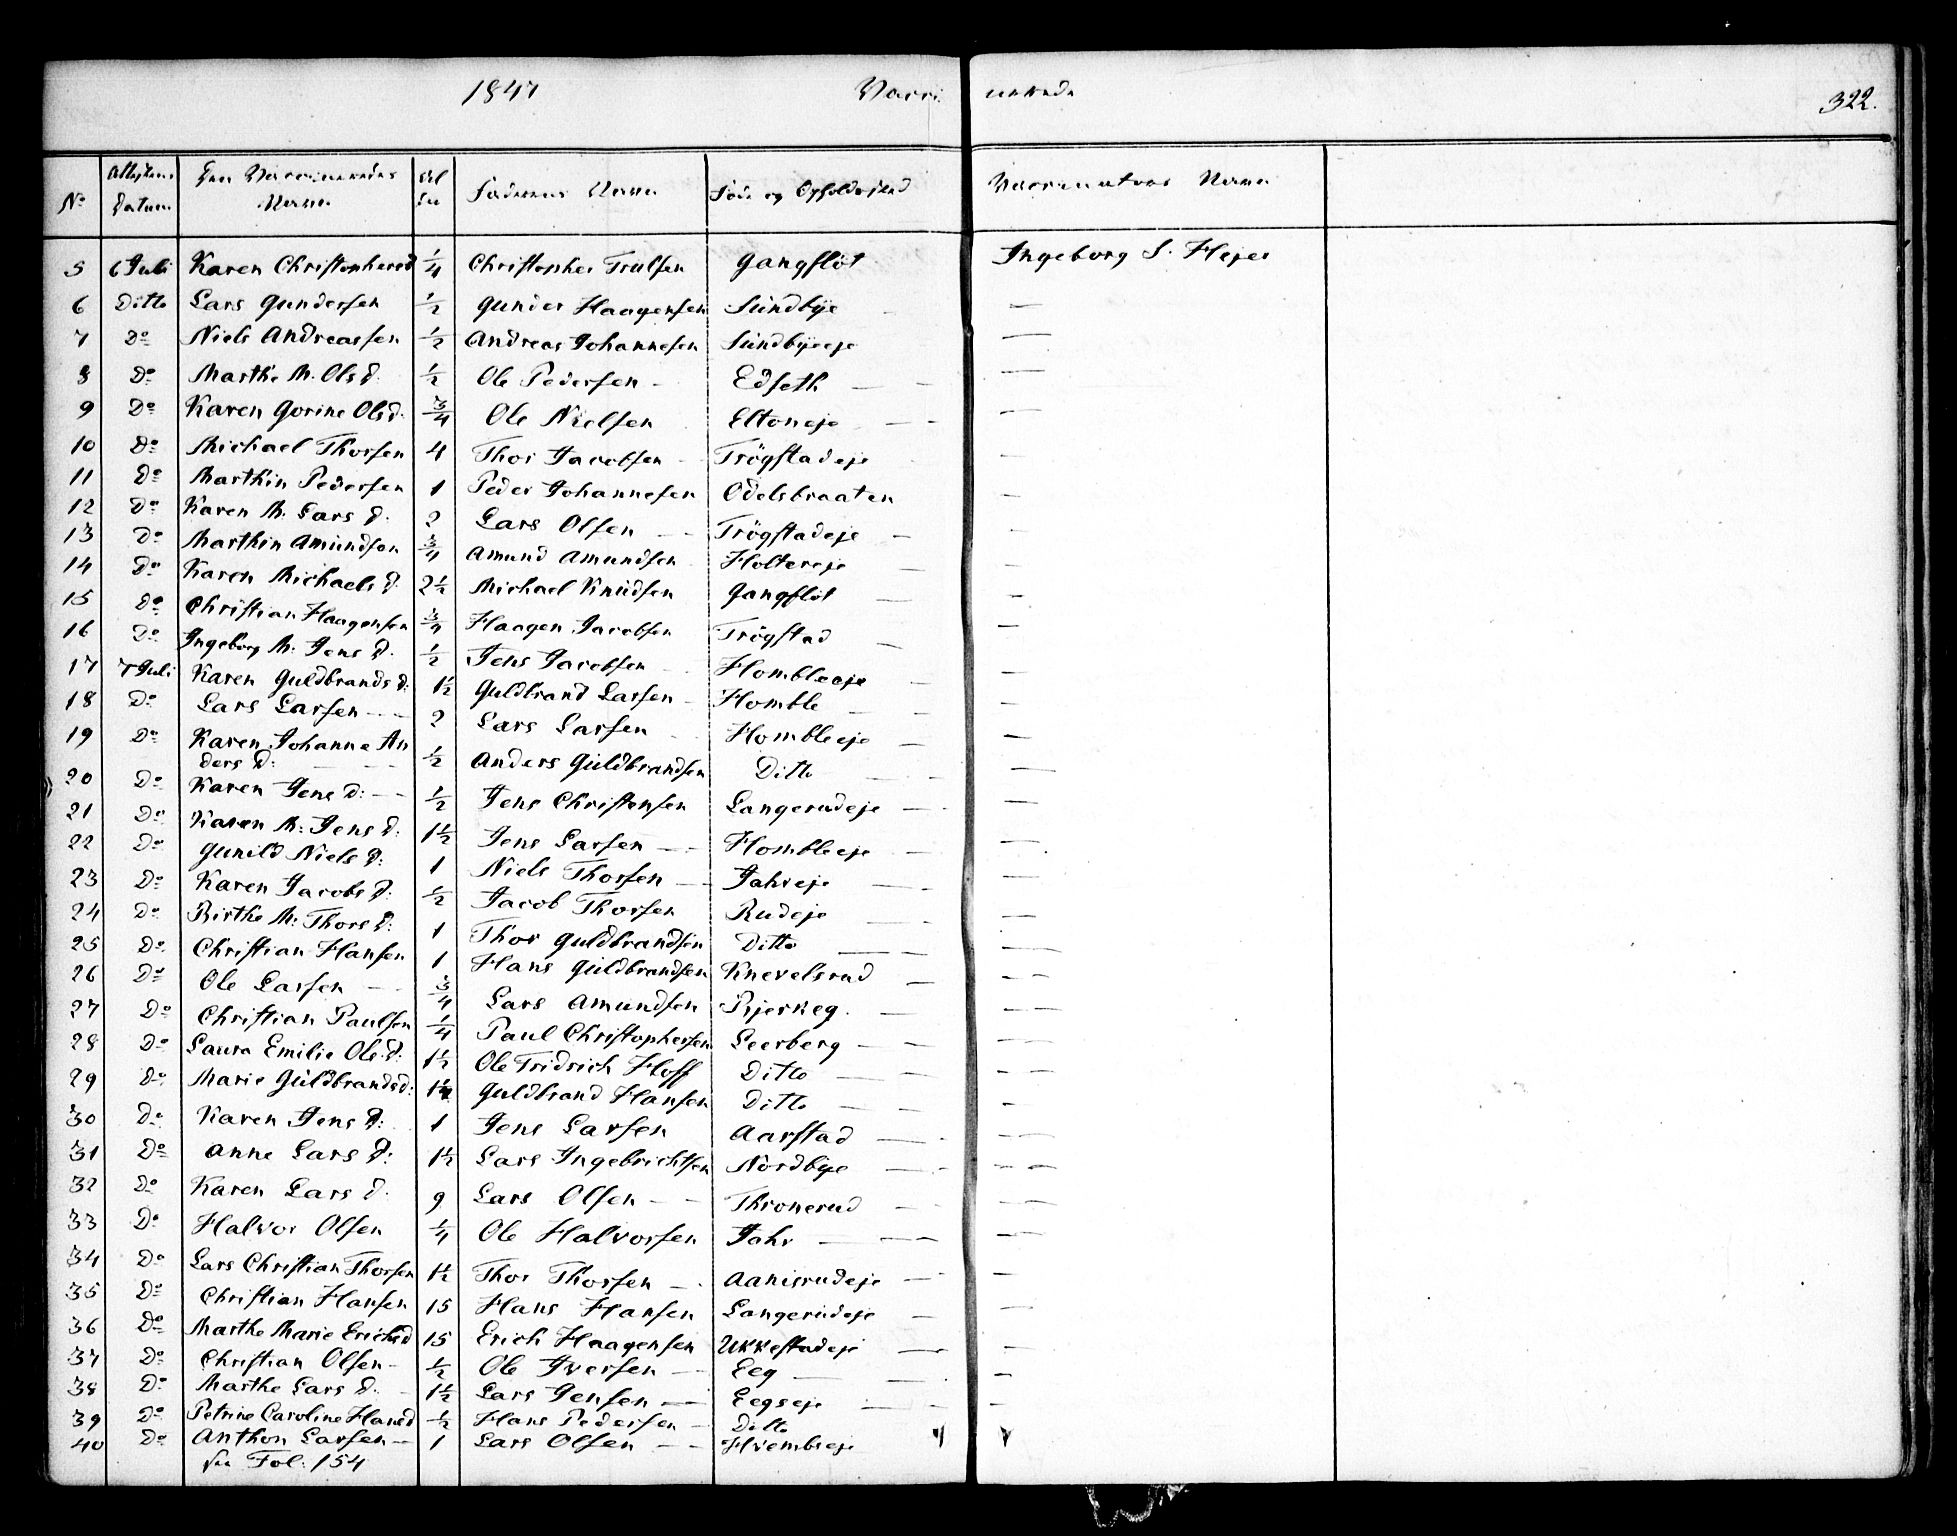 1847 Vacci nerede 322.
No Attestens Datum Den Vaccineredes Navn Al der Faderens Navn Føde og Opholdssted Vaccinateurs Navn
5 6 Juli Karen Christophersd 1/4 Christopher Trulsen Gangflöt Ingeborg S. Hejer
6 Ditto Lars Gundersen 1/2 Gunder Haagensen Sundbye —
7 Do Niels Andreassen 1/2 Andreas Johannesen Sundbyeeje —
8 Do Marthe M. Ols d. 1/2 Ole Pedersen - Edseth —
9 Do Karen Gorine Olsd. 3/4 Ole Nielsen Eltoneje —
10 Do Michael Thorsen 4 Thor Jacobsen - Trögstadeje —
11 Do Marthin Pedersen 1 Peder Johannesen Odelsbraaten —
12 Do Karen M. Lars d. 2 Lars Olsen — Trögstadeje —
13 Do Marthin Amundsen 3/4 Amund Amundsen Holtereje —
14 Do Karen Michaels d. 2 1/2 Michael Knudsen Gangflöt —
15 Do Christian Haagensen 3/4 Haagen Jacobsen Trögstad —
16 Do Ingeborg M. Jens d. 1/2 Jens Jacobsen Hombleeje —
17 7 Juli Karen Guldbrands d: 1 1/2 Guldbrand Larsen - Homble —
18 Do Lars Larsen - - 2 Lars Larsen Hombleeje —
19 Do Karen Johanne An
ders d: 1/2 Anders Guldbrandsen Ditto —
20 Do Karen Jens d: - - 1/2 Jens Christensen Langerudeje —
21 Do Karen M: Jens d: 1 1/2 Jens Larsen — Hombleeje —
22 Do Gunild Niels d: 1 Niels Thorsen — Jahreje —
23 Do Karen Jacobs d: 1/2 Jacob Thorsen Rudeje —
24 Do Birthe M: Thors d: 1 Thor Guldbrandsen Ditto —
25 Do Christian Hansen 1 Hans Guldbrandsen Knevelsrud —
26 Do Ole Larsen - - 3/4 Lars Amundsen Bjerkeg. —
27 Do Christian Paulsen 1/4 Paul Christophersen Leerberg —
28 Do Laura Emilie Ols. d: 1 1/2 Ole Fridrich Hoff Ditto —
29 Do Marie Guldbrandsd: 1 1/4 Guldbrand Hansen Ditto —
30 Do Karen Jens d: 1 Jens Larsen Aarstad —
31 Do Anne Lars d: 1 1/2 Lars Ingebrichtsen Nordbye —
32 Do Karen Lars d. 9 Lars Olsen - - Thronerud —
33 Do Halvor Olsen 1/4 Ole Halvorsen Jahr —
34 Do Lars Christian Thorsen 1 1/2 Thor Thorsen - . Aanisrudeje —
35 Do Christian Hansen 15 Hans Hansen Langerudeje —
36 Do Marthe Marie Erichsd 15 Erich Haagensen Ukkestadeje —
37 Do Christian Olsen - 1/2 Ole Iversen — Eeg —
38 Do Marthe Lars d. - 1 1/2 Lars Jensen — Eegseje —
39 Do Petrine Caroline Hansd 1/2 Hans Pedersen - Ditto
40 Do Anthon Larsen — 1 Lars Olsen — Hvembeje
see Fol: 154